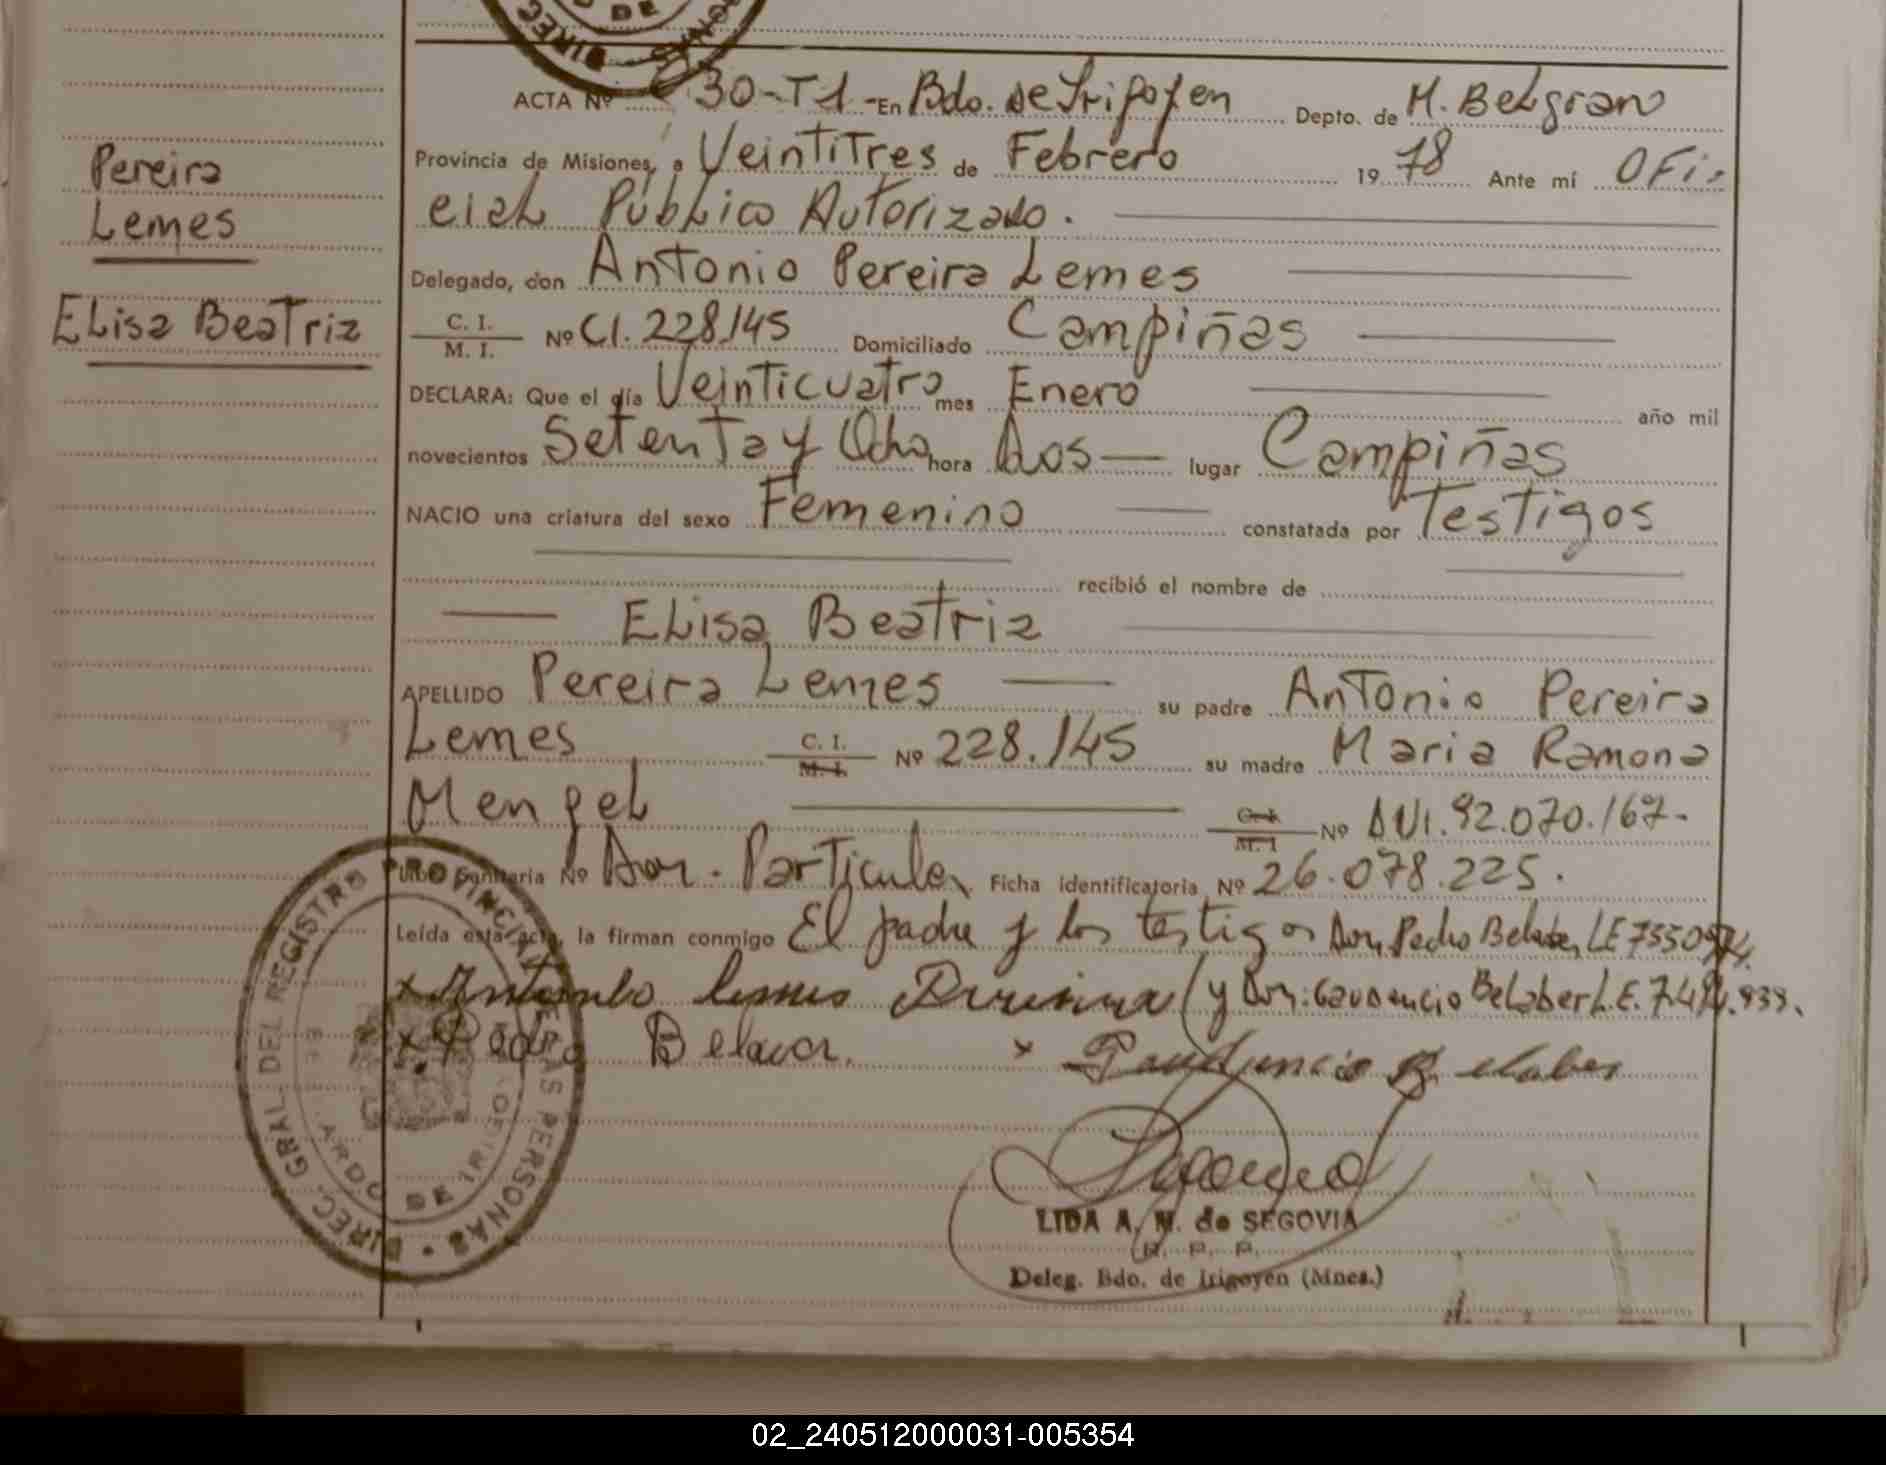 DE
DIREC
ONAS
ACTA Nº 30-T1 - En Bdo. de Irigoyen Depto. de M. Belgrano
Provincia de Misiones, a Veintitres de Febrero 1978 Ante mí Ofi-
cial Público Autorizado.
Delegado, don Antonio Pereira Lemes
C. I.
M. I. Nº CI. 228.145 Domiciliado Campiñas
DECLARA: Que el día Veinticuatro mes Enero año mil
novecientos Setenta y Ocho hora Dos lugar Campiñas
NACIO una criatura del sexo Femenino constatada por Testigos
recibió el nombre de
Elisa Beatriz
APELLIDO Pereira Lemes su padre Antonio Pereira
Lemes C. I. M. I. Nº 228.145 su madre Maria Ramona
Mengel C. I. M. I Nº DNI. 92.070.167-
Sanitaria Nº Dom. Particular Ficha identificatoria Nº 26.078.225.
Leída esta acta, la firman conmigo El padre y los testigos Don Pedro Belaber, LE
y Don: Gaudencio Belaber L.E. 7.484.939.
Pedro Belaver.
Gaudencio Belaber
LIDA A. M. de SEGOVIA
R. P. P.
Deleg. Bdo. de Irigoyen (Mnes.)
Pereira
Lemes
Elisa Beatriz
DIREC. GRAL. DEL REGISTRO PROVINCIAL DE LAS PERSONAS
ARDO DE IRIGO
02_240512000031-005354